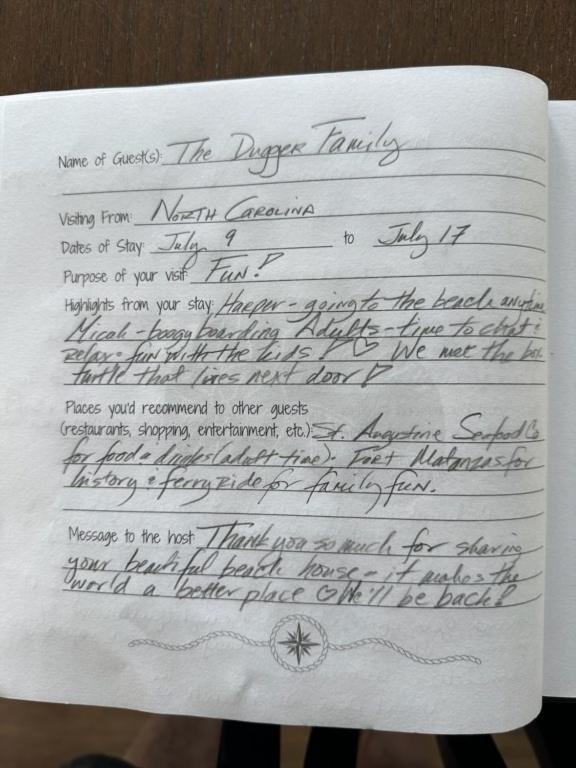 Name of Guest(s): The Dugger Family
Visiting From: North Carolina
Dates of Stay: July 9 to July 17
Purpose of your visit: Fun!
Highlights from your stay: Harper - going to the beach anytime
Micah - boogy boarding Adults - time to chat &
relax & fun with the kids! ♡ We met the box
turtle that lives next door!
Places you'd recommend to other guests
(restaurants, shopping, entertainment, etc.): St. Augustine Seafood Co
for food & drinks (adult time). Fort Matanzas for
history & ferry ride for family fun.
Message to the host: Thank you so much for sharing
your beautiful beach house - it makes the
world a better place ♡ We'll be back!